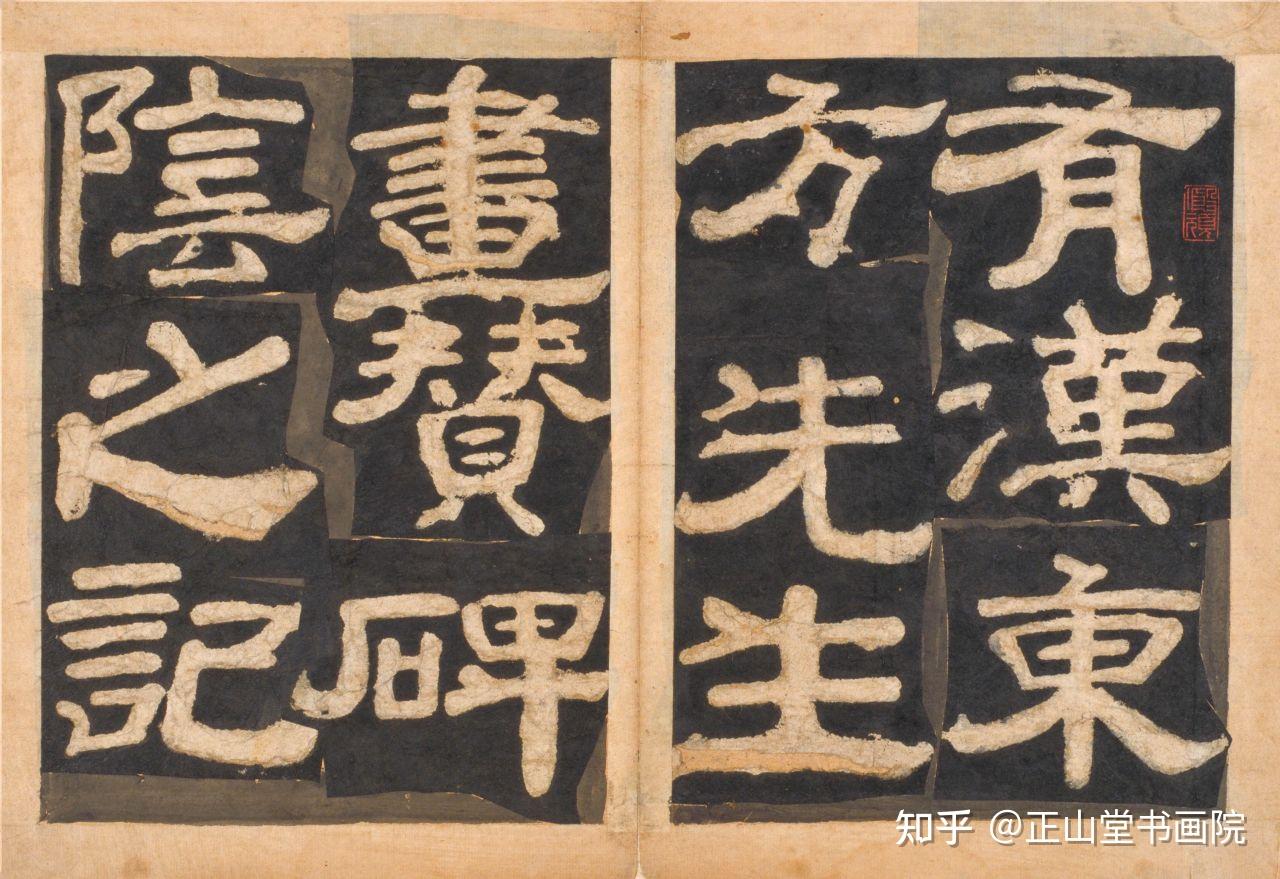 有漢東
方先生
畫賛碑
陰之記
知乎 @正山堂书画院